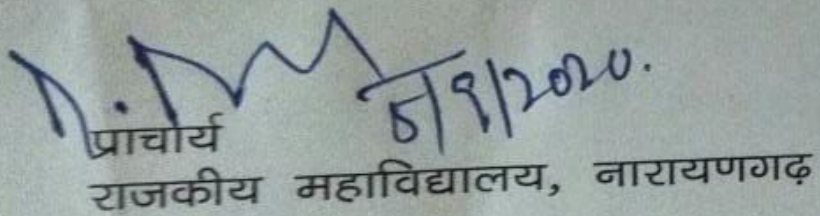 5/9/2020.
प्राचार्य
राजकीय महाविद्यालय, नारायणगढ़